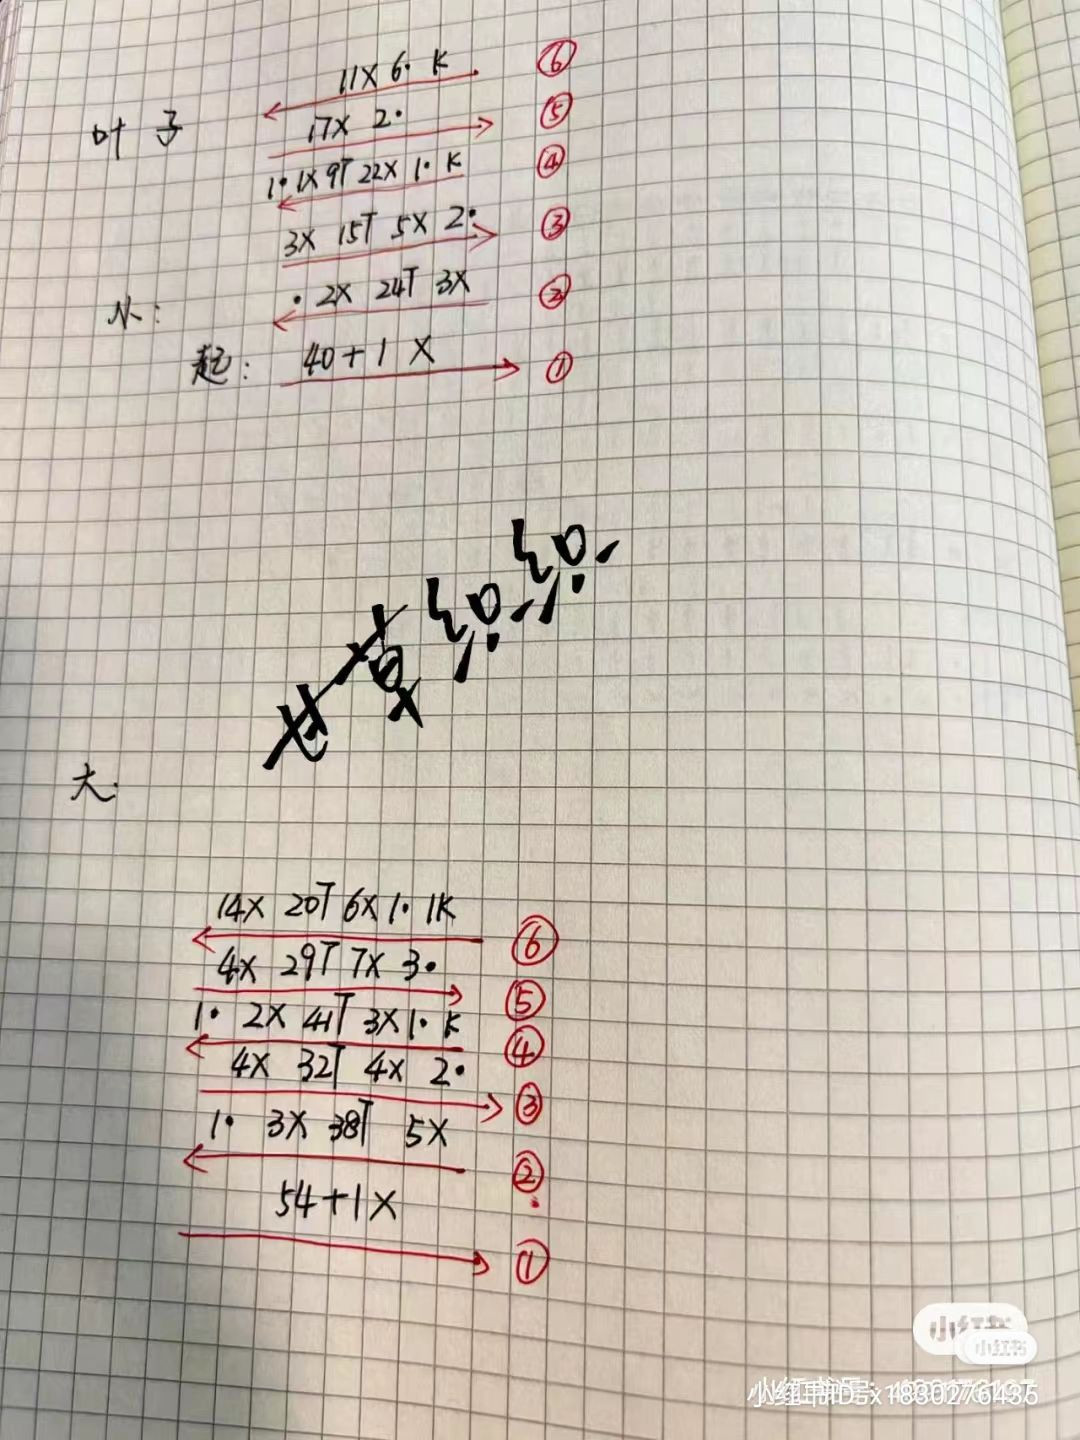 11X 6· K ⑥
叶子
17X 2· ⑤
1· 1X 9T 22X 1· K ④
3X 15T 5X 2· ③
小:
· 2X 24T 3X ②
起: 40+1X ①
大:
14X 20T 6X 1· 1K ⑥
4X 29T 7X 3· ⑤
1· 2X 41T 3X 1· K ④
4X 32T 4X 2· ③
1· 3X 38T 5X ②
54+1X ①
小红书
小红书